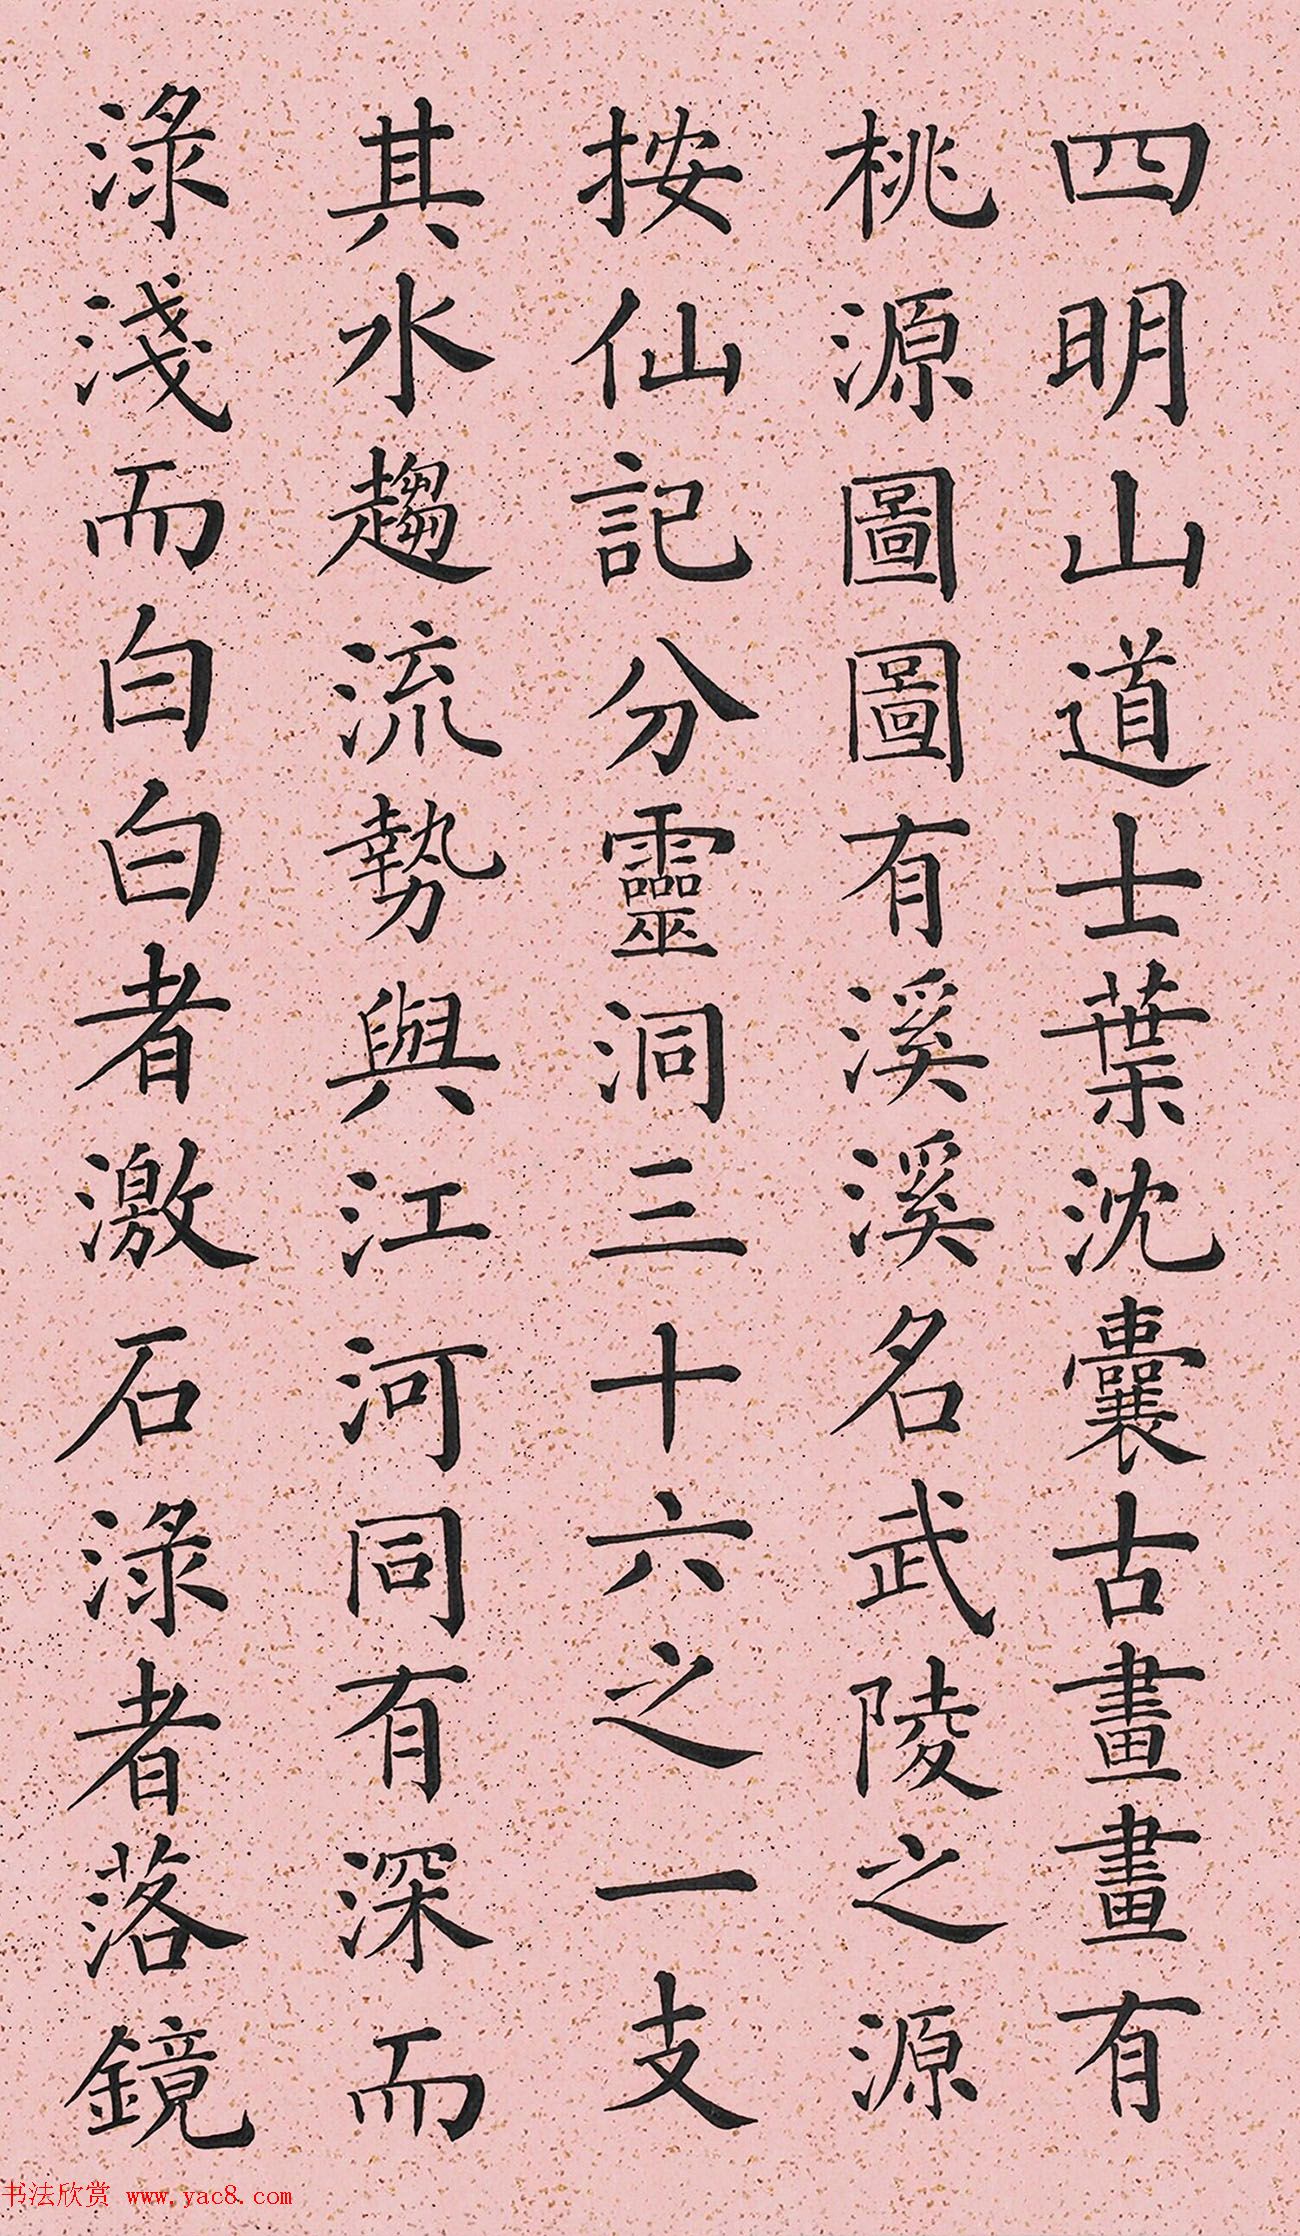 四明山道士葉沈囊古畫畫有
桃源圖圖有溪溪名武陵之源
按仙記分靈洞三十六之一支
其水趨流勢與江河同有深而
淥淺而白白者激石淥者落鏡
书法欣赏 www.yac8.com